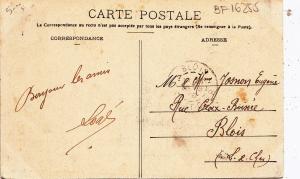 CARTE POSTALE
BF-16255
La Correspondance au recto n'est pas acceptée par tous les pays étrangers (Se renseigner à la Poste).
CORRESPONDANCE
ADRESSE
Bonjour les amis
Mr & Mme Josnon Eugène
Rue Croix-Boissée
Blois
Loir-&-Cher